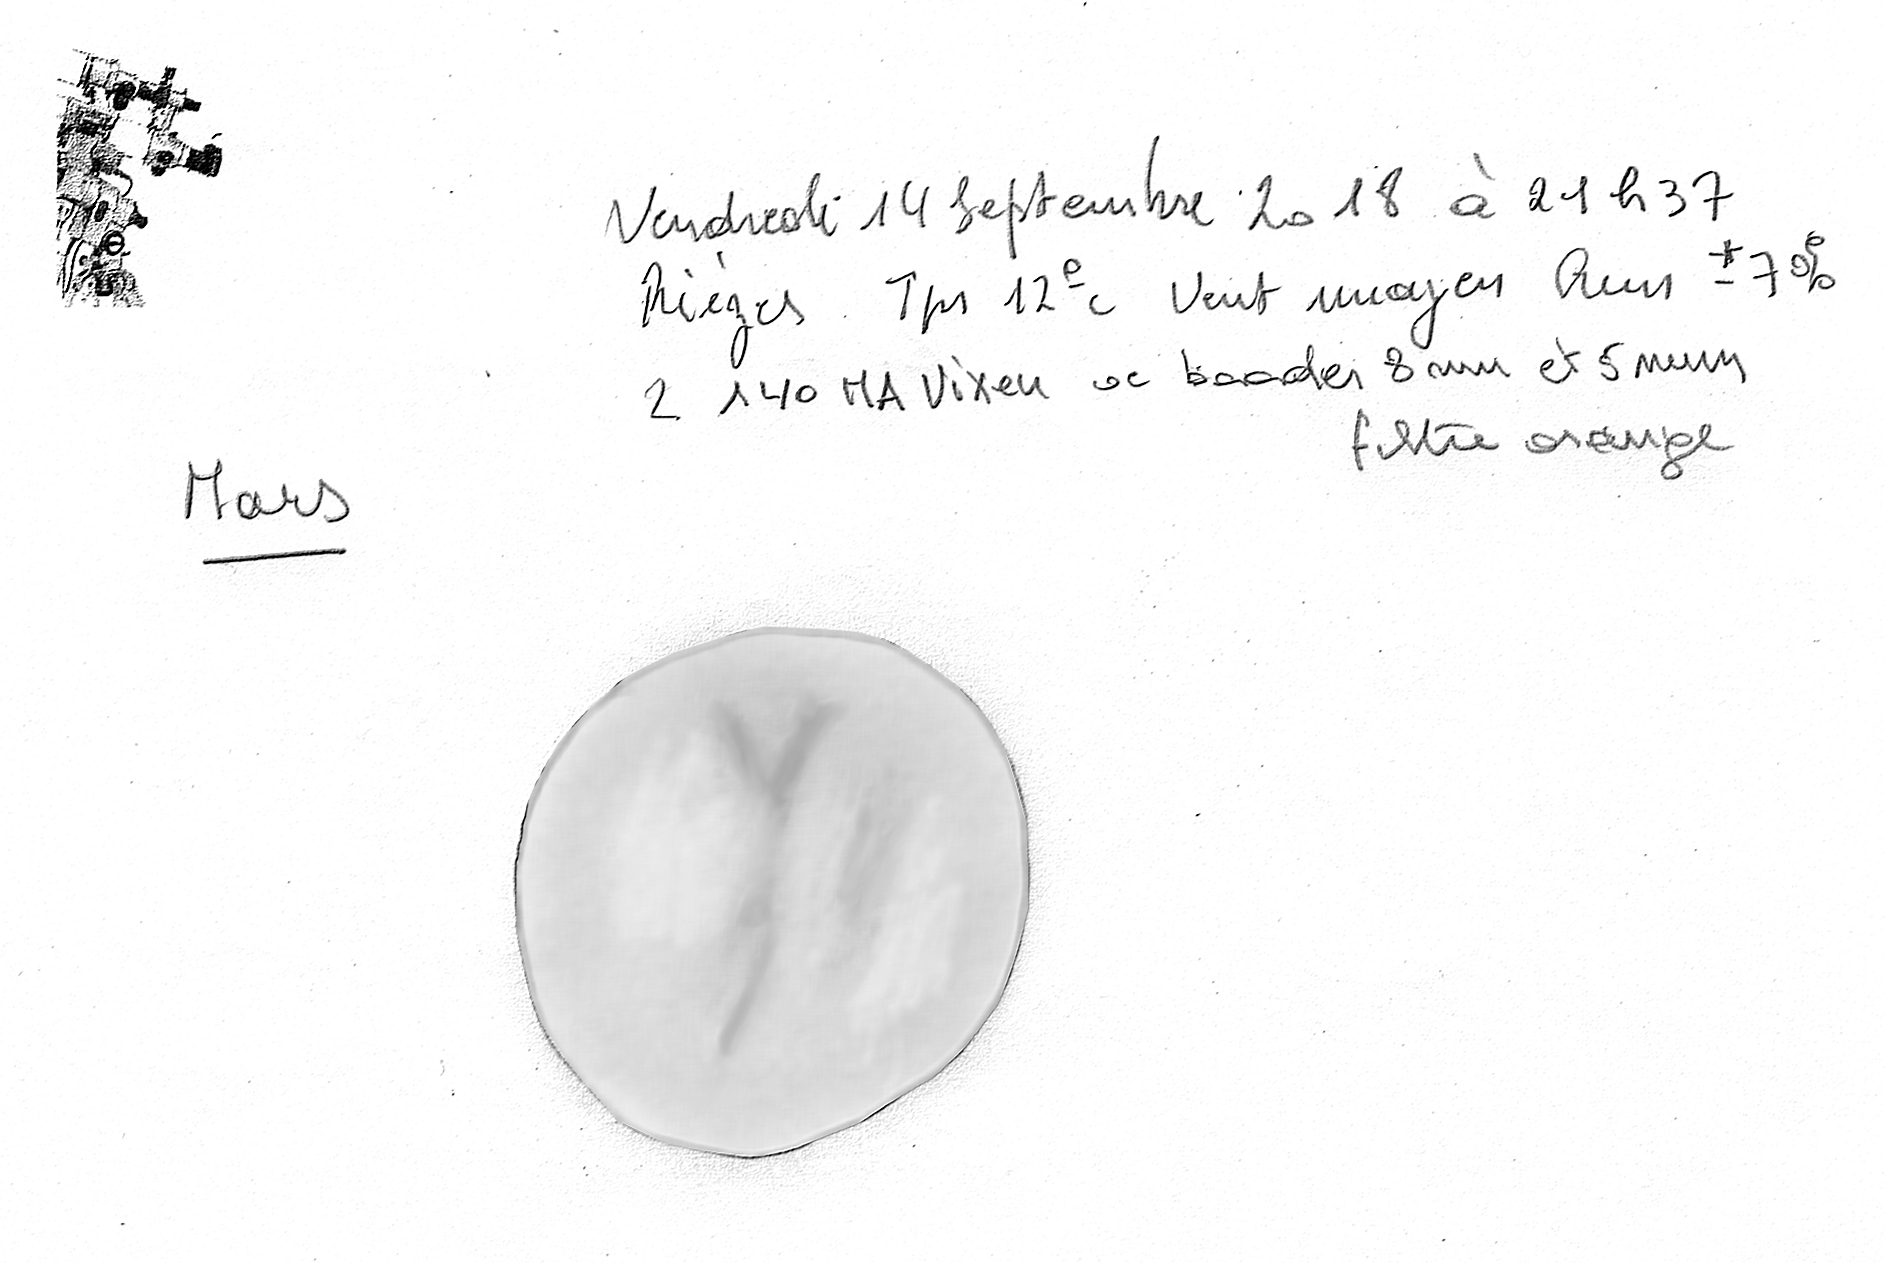 Vendredi 14 Septembre 2018 à 21h37
Rièges Tps 12°c Vent moyen Hum ± 70%
L 140 NA Vixen oc baader 8mm et 5mm
filtre orange
Mars